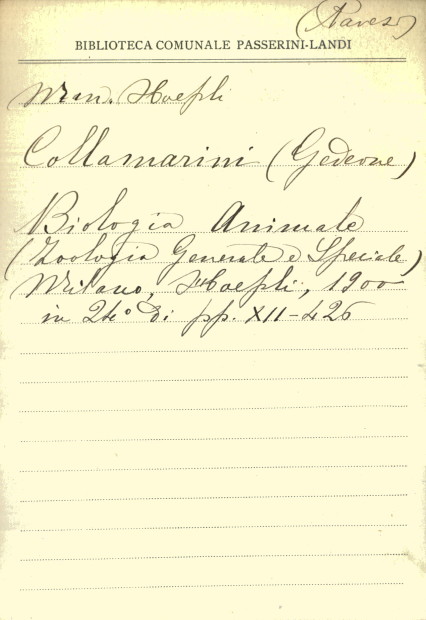 (Pavesi)
BIBLIOTECA COMUNALE PASSERINI-LANDI
Man. Hoepli
Collamarini (Gedeone)
Biologia Animale
(Zoologia Generale e Speciale)
Milano, Hoepli, 1900
in 24° di pp. XII-426